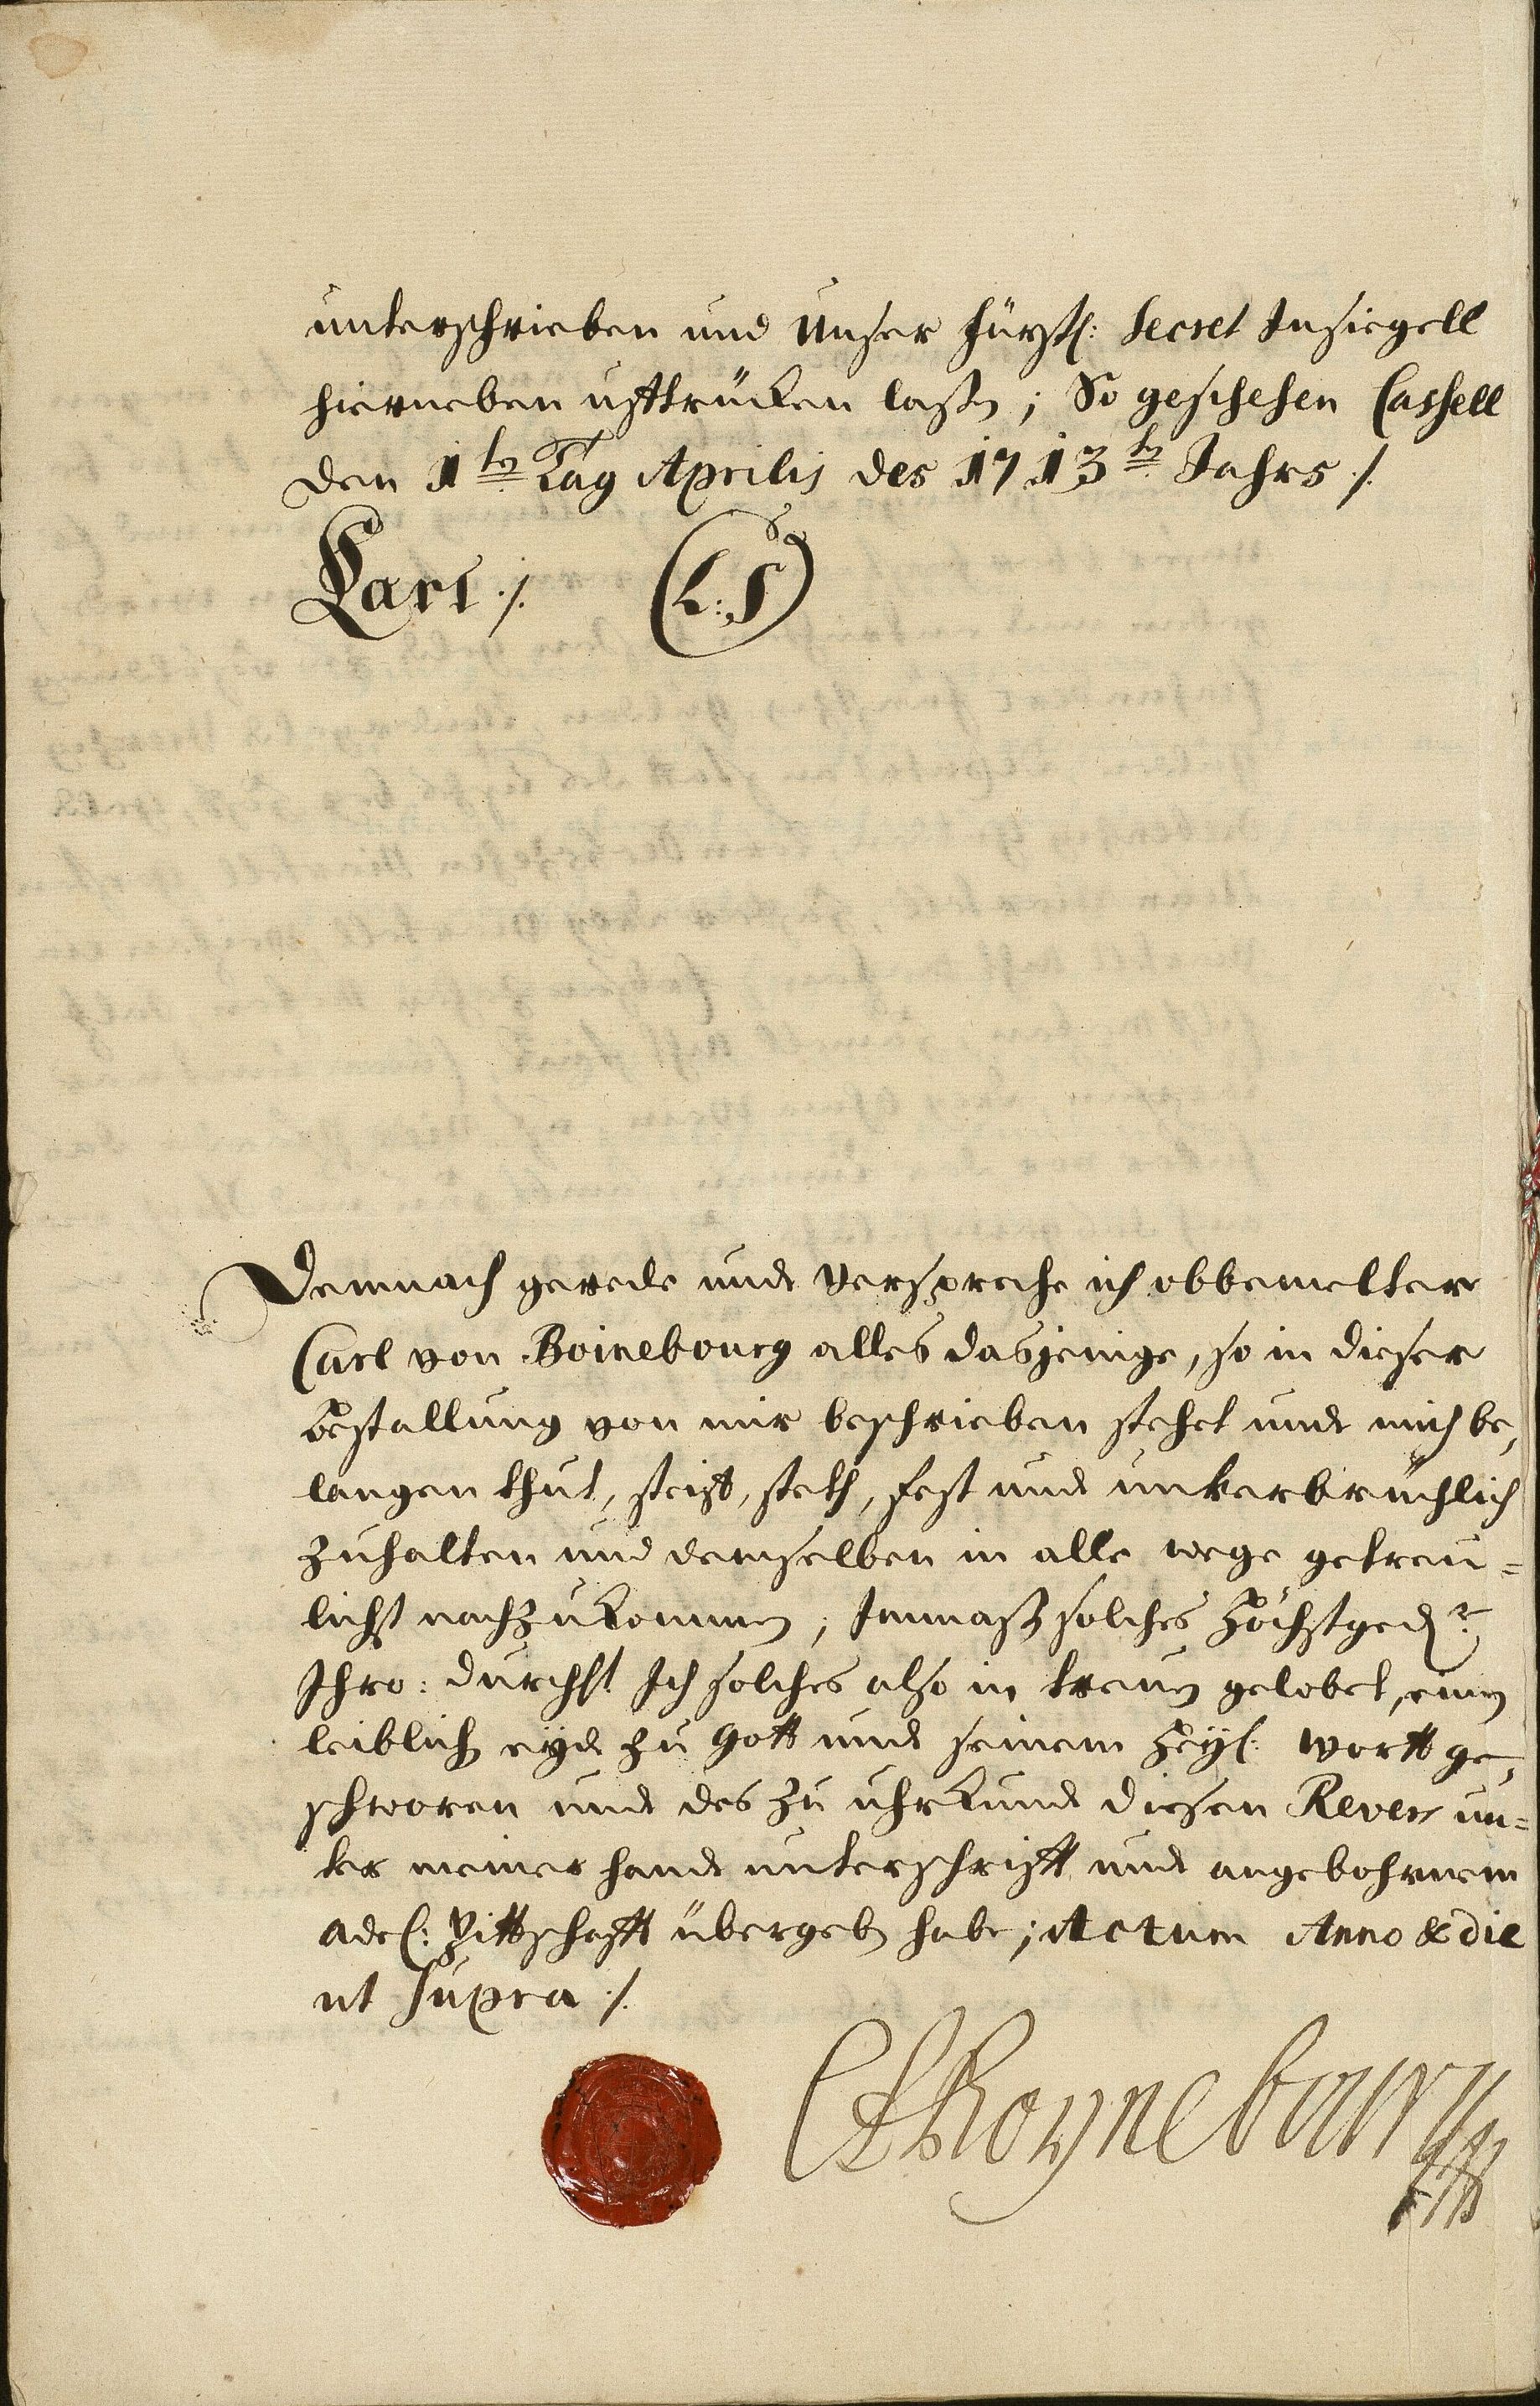 unterschrieben und Unser Fürstl: Secret Insiegell
hierneben ufftrücken laßen; So geschehen Cassell
den 1ten Tag Aprilis des 1713ten Jahrs ./.
Carl ./. (L:S)
Demnach gerede unde verspreche ich obbemelter
Carl von Boinebourg alles dasjenige, so in dieser
Bestallung von mir beschrieben stehet unde mich be,
langen thut, steiff, steth, fest unde unverbrüchlich
zuhalten und demselben in alle wege getreu=
lichst nachzukommen, Inmaßen solches Höchstgedr.
Ihro: durchlt. Ich solches also in treuen gelobet, einen
leiblichen eyde zu Gott unde seinem Heyl: Wortt ge,
schworen unde des zu uhrkunde diesen Revers un=
ter meiner hande unterschrifft unde angebohrnem
adel: Pittschafft übergeben habe; Actum Anno & die
ut Supra ./.
Boynebourg